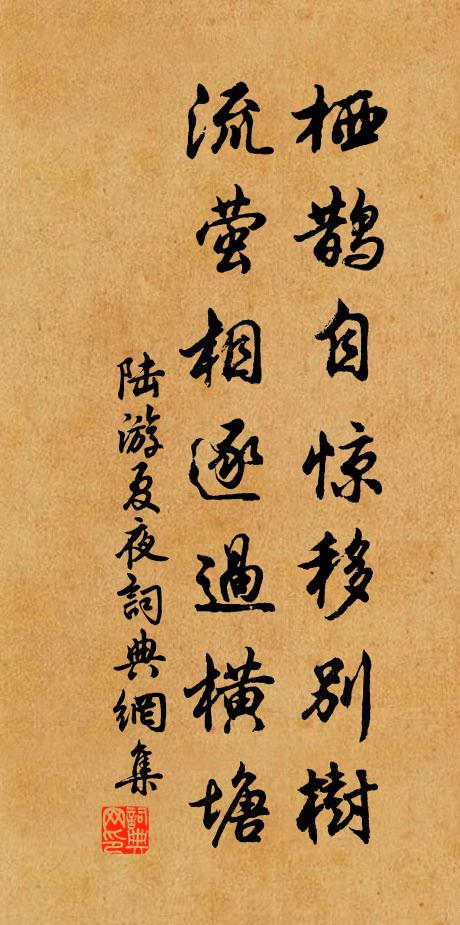 栖鹊自惊移别樹
流萤相逐過横塘
陆游夏夜詞典網集
詞典网印